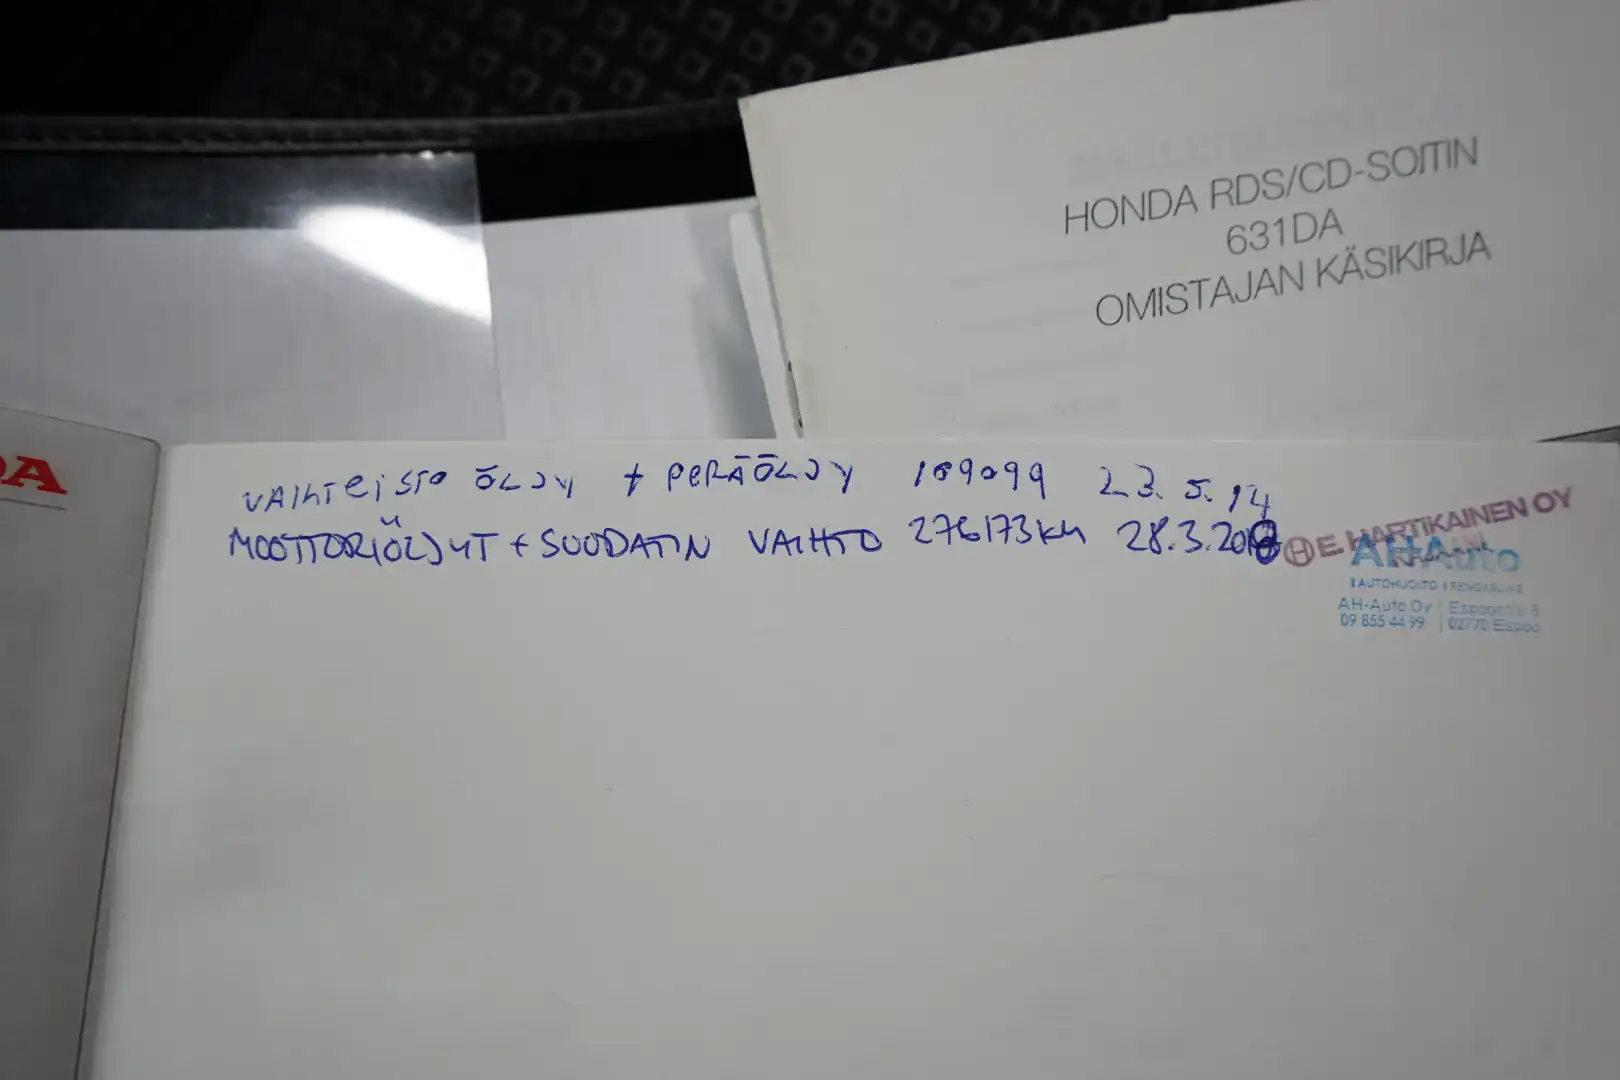 HONDA RDS/CD-SOITIN
631DA
OMISTAJAN KÄSIKIRJA
DA
VAIHTEISTO ÖLJY + PERÄÖLJY 169099 23.5.14
MOOTTORIÖLJYT + SUODATIN VAIHTO 276173KM 28.3.201
E. HARTIKAINEN OY
AH-Auto
AUTOHUOLTO RENGASLIIKE
AH-Auto Oy
09 855 44 99 02770 Espoo